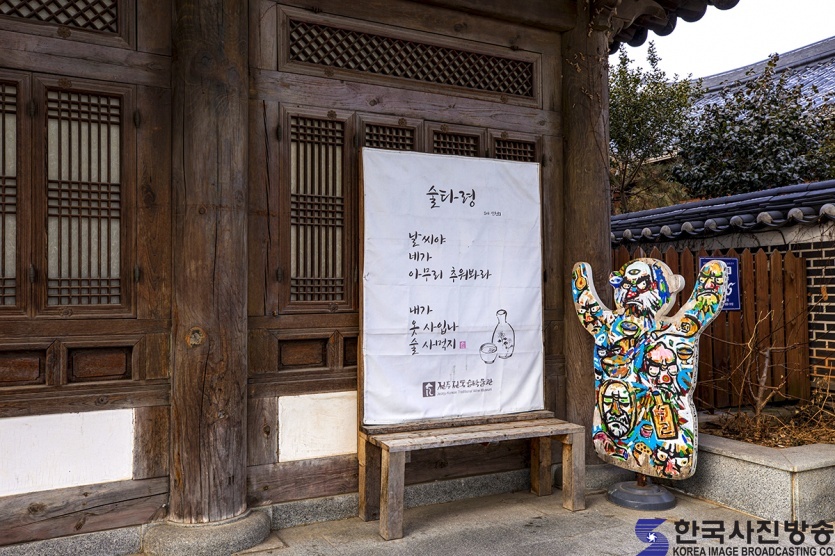 술타령
날씨야
네가
아무리 추워봐라
내가
옷 사입나
술 사먹지
전주전통술박물관
한국사진방송
KOREA IMAGE BROADCASTING CO